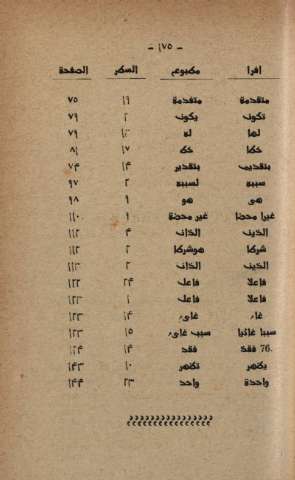 - ١٧٥ -
اقرا مطبوع السطر الصفحة
متقدمة متفدمة ١٩ ٧٥
تكون يكون ٢ ٧٩
لها له ٧٩
١٧ ٨١
بتقدير ١٤ ٧٤
سببه لسببه ٢ ٩٧
هى هو ٩ ٩٨
غيرا محضا غير محضة ١ ١١٠
الذين الذان ٤ ١١٢
شركا هوشركا ٢ ١١٢
الذين الذان ٢ ١١٣
فاعلا فاعل ٢٤ ١٢٢
فاعلا فاعل ١ ١٢٣
١٤ ١٢٣
سببا غائيا سبب ١٥ ١٢٣
76. فقد فقد ١٤ ١٢٤
يظهر تظهر ١٠ ١٤٣
واحدة واحد ٢٣ ١٤٤